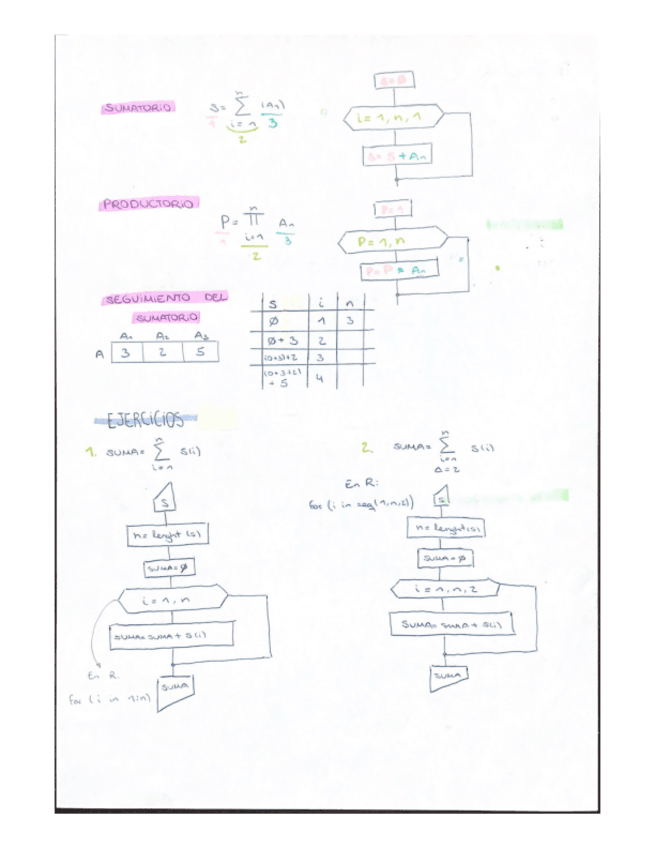 SUMATORIO
S = ∑ (A₁)
n
i = 1
1
2
3
S = ∅
i = 1, n, 1
S = S + An
PRODUCTORIO
P = ∏ An
n
i = 1
1
2
3
P = 1
P = 1, n
P = P * An
SEGUIMIENTO DEL
SUMATORIO
A₁ A₂ A₃
A 3 2 5
S i n
∅ 1 3
∅ + 3 2
(0+3)+2 3
(0+3+2) + 5 4
EJERCICIOS
1. SUMA = ∑ S(i)
n
i = 1
S
n = lenght (s)
SUMA = ∅
i = 1, n
SUMA = SUMA + S(i)
SUMA
En R:
for (i in 1:n)
2. SUMA = ∑ S(i)
n
i = 1
Δ = 2
En R:
for (i in seq(1,n,2))
S
n = lenght(s)
SUMA = ∅
i = 1, n, 2
SUMA = SUMA + S(i)
SUMA